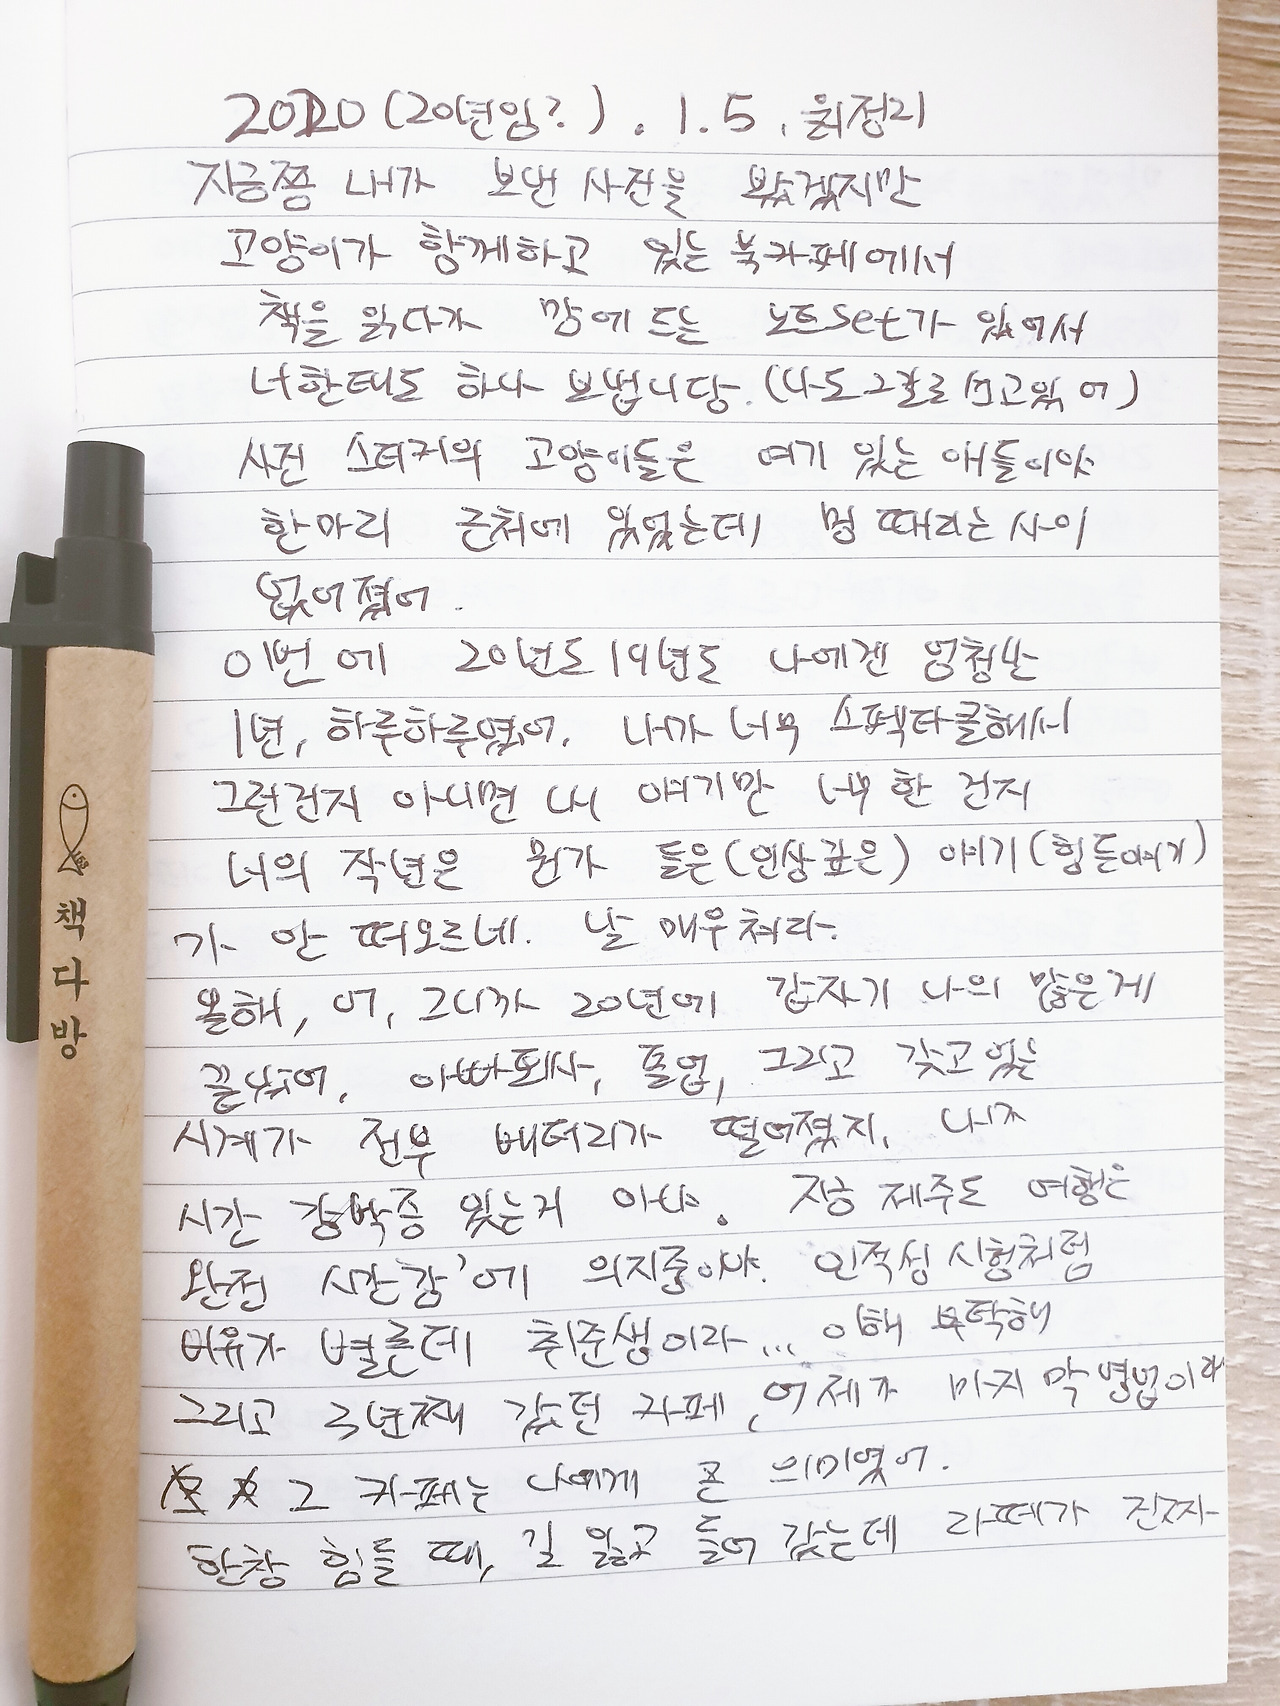 2020 (20년임?) . 1. 5.
지금쯤 내가 보낸 사진을 봤겠지만
고양이가 함께하고 있는 북카페에서
책을 읽다가 맘에 드는 노트set가 있어서
너한테도 하나 보냅니당. (나도 그걸로 쓰고있어)
사진 스티커의 고양이들은 여기 있는 애들이야
한마리 근처에 있었는데, 멍 때리는 사이
없어졌어.
이번에 20년도 19년도 나에겐 엄청난
1년, 하루하루였어. 내가 너무 스펙타클해서
그런건지 아니면 내 얘기만 너무 한 건지
너의 작년은 뭔가 들은 (인상깊은) 얘기 (힘든얘기)
가 안 떠오르네. 날 매우쳐라.
올해, 어, 그니까 20년에 갑자기 나의 많은게
끝났어. 아빠회사, 졸업, 그리고 갖고있는
시계가 전부 배터리가 떨어졌지.
시간 강박증 있는거 아냐. 지금 제주도 여행은
완전 시간감'에 의지중이야. 인적성 시험처럼
여유가 별론데 취준생이라... 이해 부탁해
그리고 3년째 갔던 카페, 어제가 마지막 영업이라
그 카페는 나에게 큰 의미였어.
한창 힘들 때, 길 잃고 들어 갔는데 라떼가 진짜
책다방